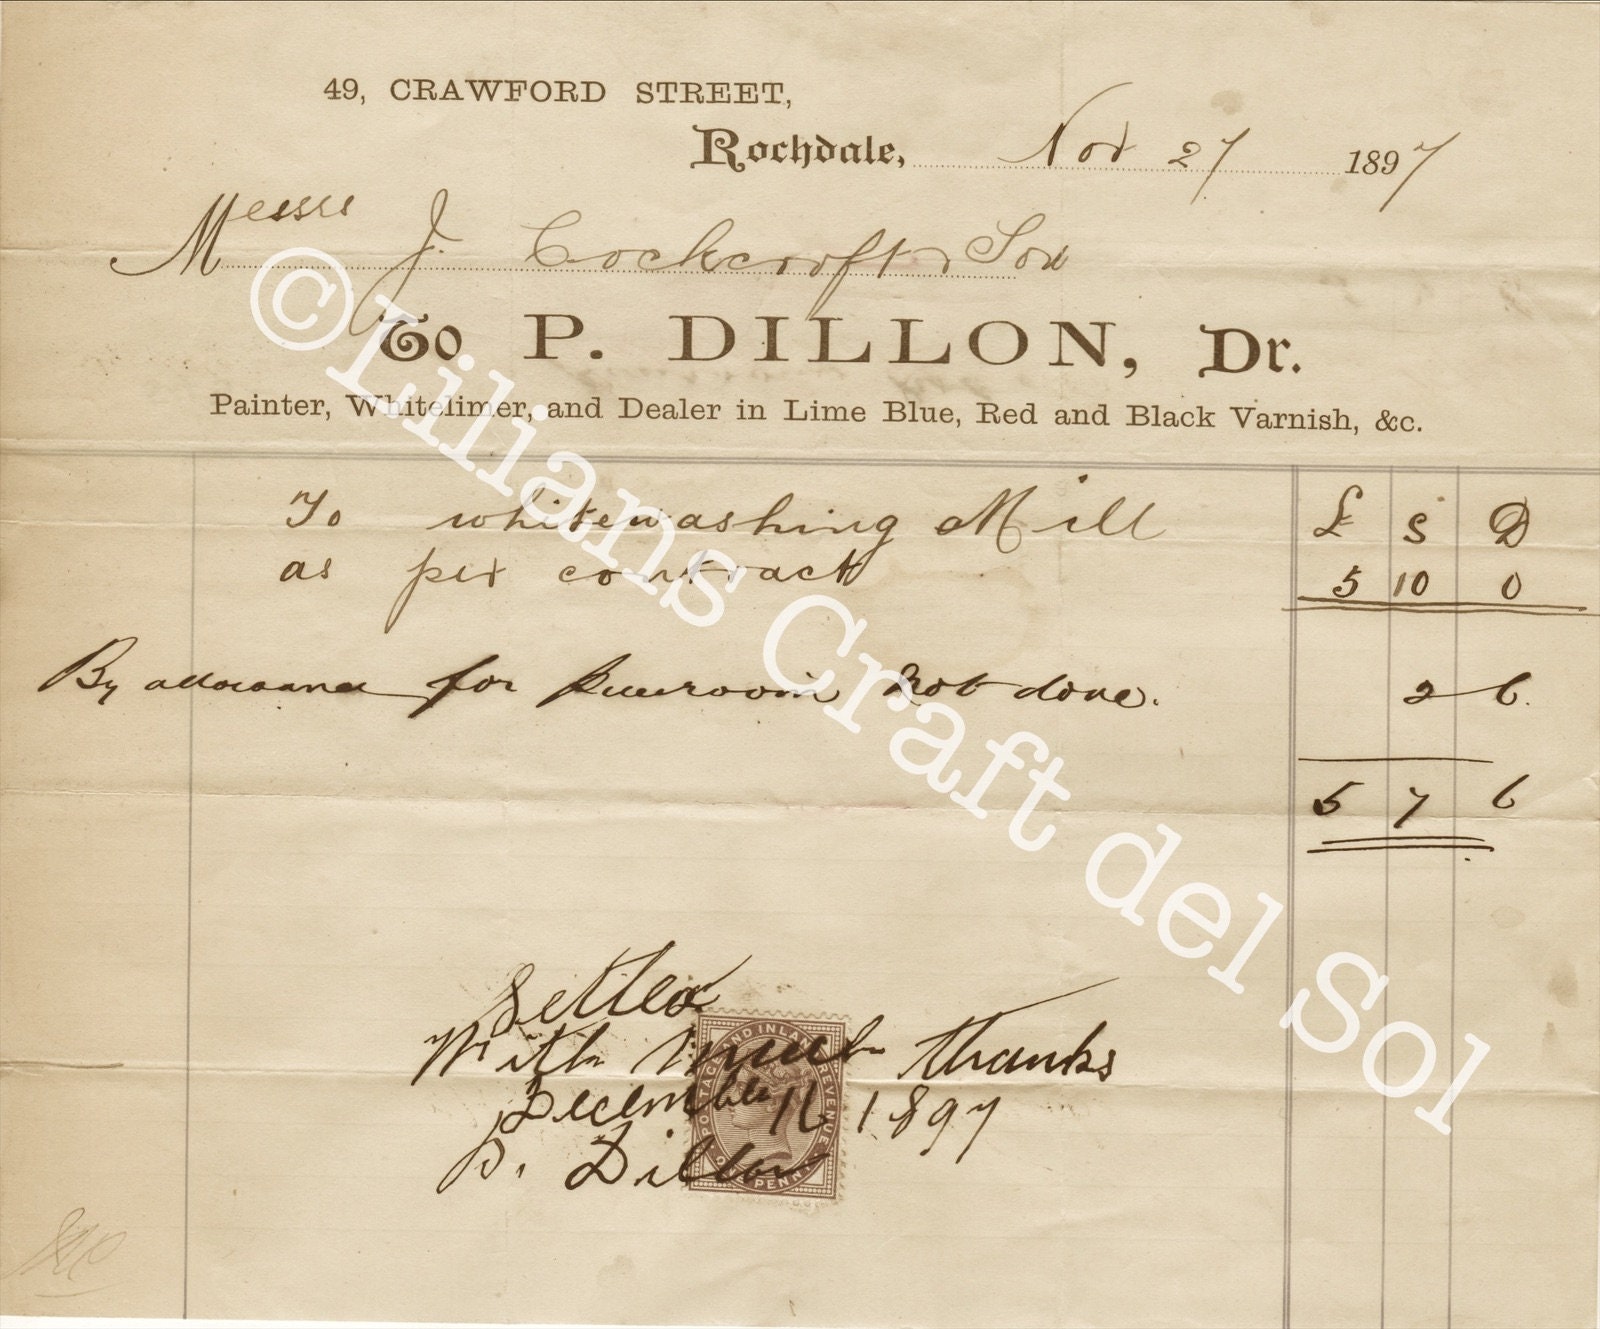 49, CRAWFORD STREET,
Rochdale, Nov 27 1897
Messrs J. Cockcroft & Son
To P. DILLON, Dr.
Painter, Whitelimer, and Dealer in Lime Blue, Red and Black Varnish, &c.
To whitewashing Mill £ S D
as per contract 5 10 0
By allowance for room not done. 2 6.
5 7 6
Settled
With much thanks
December 11 1897
P. Dillon
POSTAGE AND INLAND REVENUE
ONE PENNY
©Lilians Craft del Sol